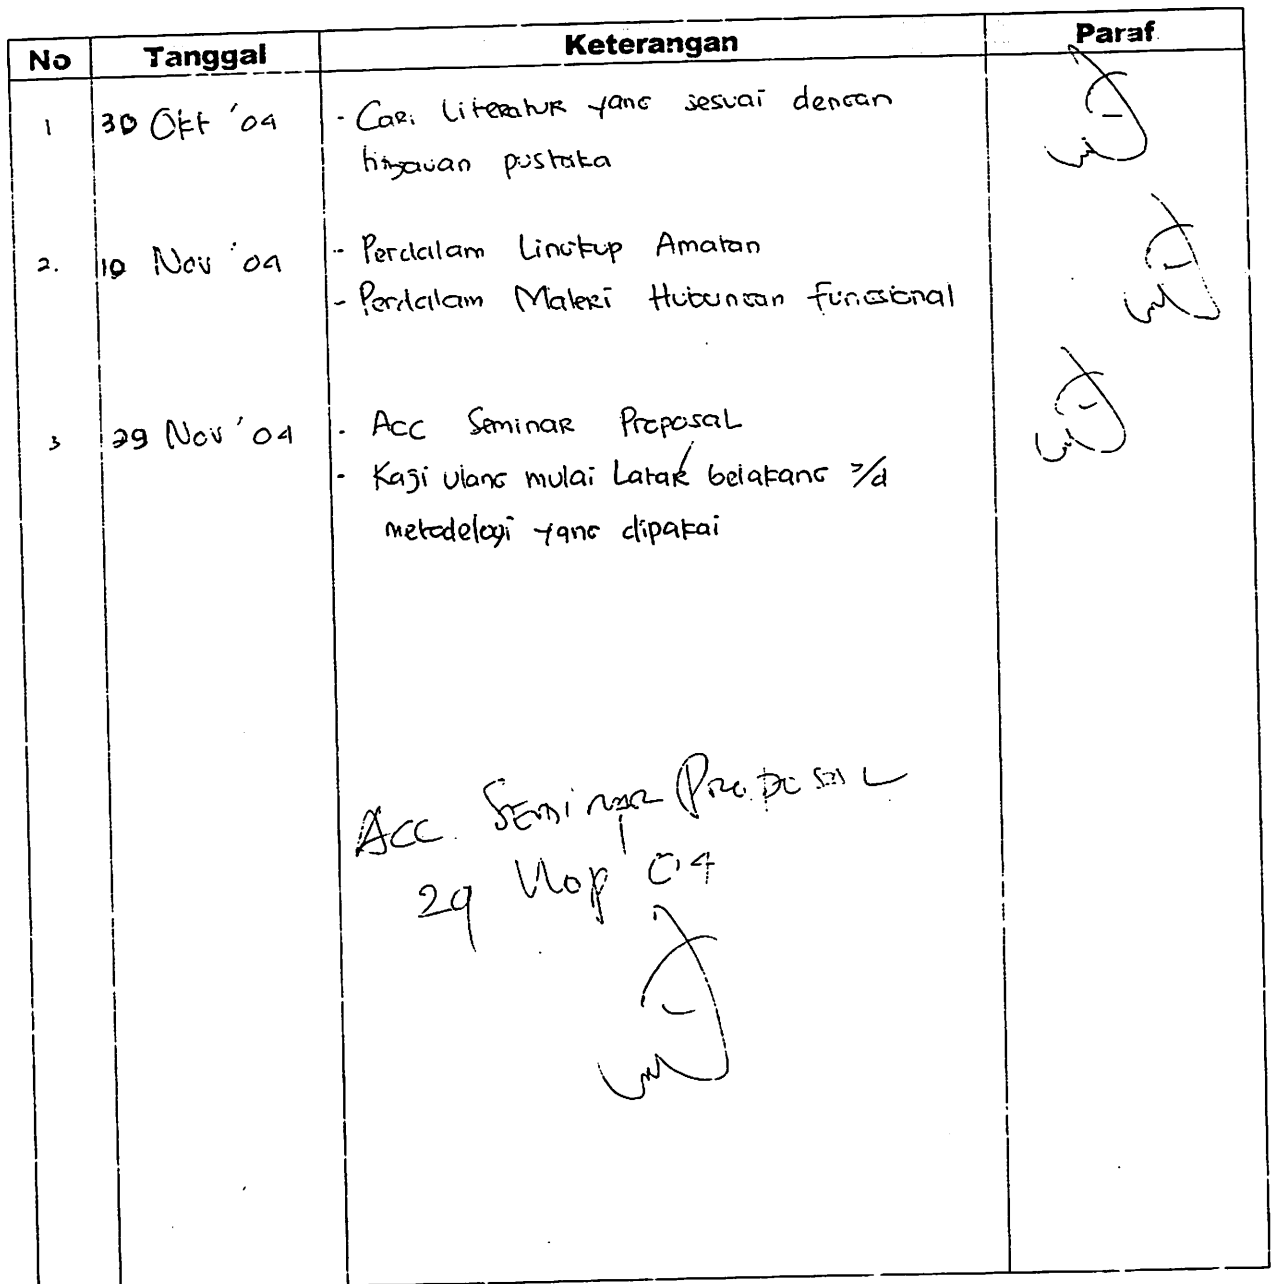 No Tanggal Keterangan Paraf
1 30 Okt '04 - Cari literatur yang sesuai dengan
tinjauan pustaka
2. 10 Nov '04 - Perdalam Lingkup Amatan
- Perdalam Materi Hubungan fungsional
3 29 Nov '04 - Acc Seminar Proposal
- Kaji ulang mulai Latar belakang s/d
metodelogi yang dipakai
Acc. Seminar Proposal
29 Nop '04